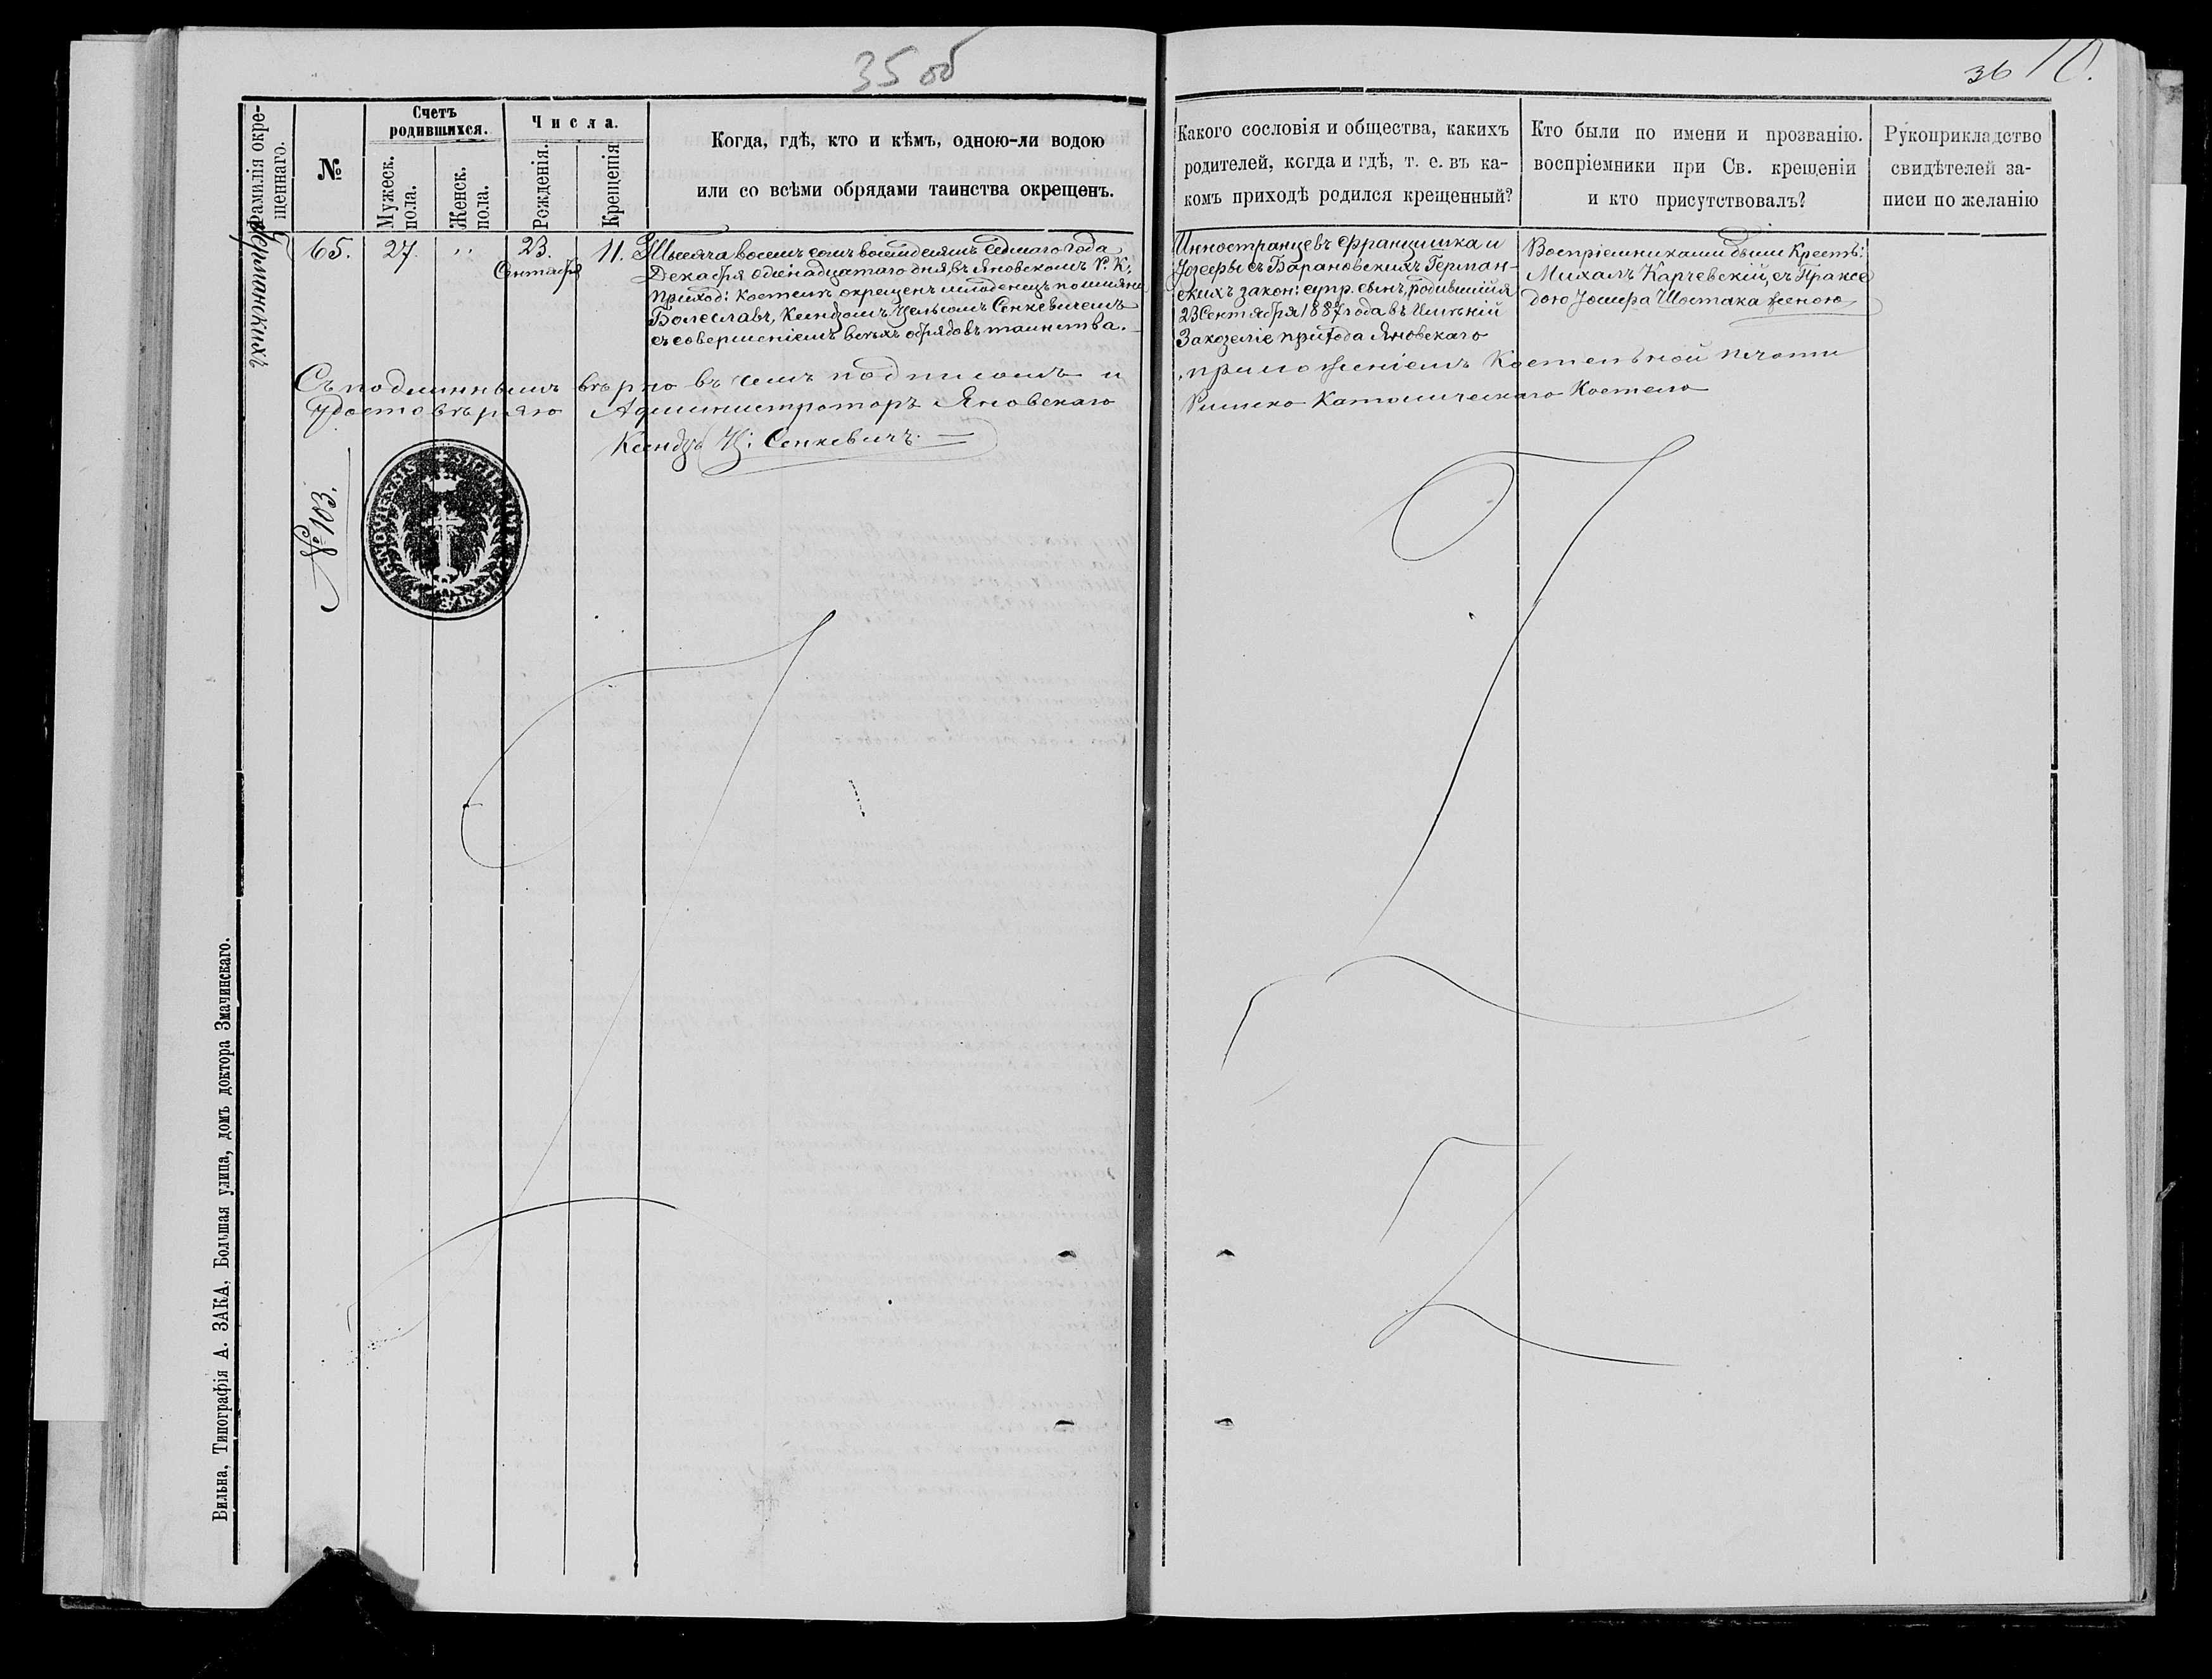 35 об
36 10.
Фамилія окре-
щеннаго.
№
Счетъ
родившихся.
Мужеск.
пола.
Женск.
пола.
Числа.
Рожденія.
Крещенія
Когда, гдѣ, кто и кѣмъ, одною-ли водою
или со всѣми обрядами таинства окрещенъ.
Какого сословія и общества, какихъ
родителей, когда и гдѣ, т. е. въ ка-
комъ приходѣ родился крещенный?
Кто были по имени и прозванію.
воспріемники при Св. крещеніи
и кто присутствовалъ?
Рукоприкладство
свидѣтелей за-
писи по желанію
Германскихъ
65. 27. " 23. 11.
Сентября
Тысяча восемь сотъ восемдесятъ седмаго года
Декабря одинадцатаго дня, въ Яновскомъ Р. К.
приход: костелѣ окрещенъ младенецъ по имяни
Болеславъ, Ксендзомъ Сенкевичемъ
съ совершеніемъ всѣхъ обрядовъ таинства.
Инностранцевъ Францишка и
Іозефы съ Барановскихъ Герман-
скихъ закон: супр. сынъ, родившійся
23 Сентября 1887 года въ Имѣній
Закозелье прихода Яновскаго
Воспріемниками были Крестъ:
Михалъ Карчевскій, съ Праксе
дою Іосифа Шостака женою
Съ подлиннымъ вѣрно въ чемъ подписомъ и приложеніемъ Костельной печати
удостовѣряю Администраторъ Яновскаго Римско Католическаго Костела
Ксендзъ Ц: Сенкевичъ.
№ 103.
SIGILLUM ECCLESIÆ JANOVIENSIS
Вильна, Типографія А. ЗАКА, Большая улица, домъ доктора Змачинскаго.